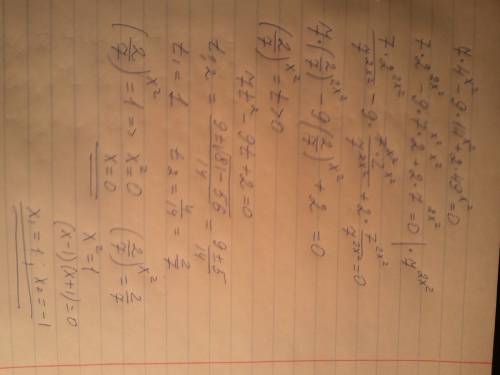 7·4^{x²} - 9·14^{x²} + 2·49^{x²} = 0
7·2^{2x²} - 9·7^{x²}·2^{x²} + 2·7^{2x²} = 0 | : 7^{2x²}
7·2^{2x²}/7^{2x²} - 9·7^{x²}·2^{x²}/7^{2x²} + 2·7^{2x²}/7^{2x²} = 0
7·(2/7)^{2x²} - 9(2/7)^{x²} + 2 = 0
(2/7)^{x²} = t > 0
7t² - 9t + 2 = 0
t₁,₂ = 9±√81-56/14 = 9±5/14
t₁ = 1 t₂ = 4/14 = 2/7
(2/7)^{x²} = 1 => x² = 0 (2/7)^{x²} = 2/7
x = 0 x² = 1
(x-1)(x+1) = 0
x₁ = 1, x₂ = -1